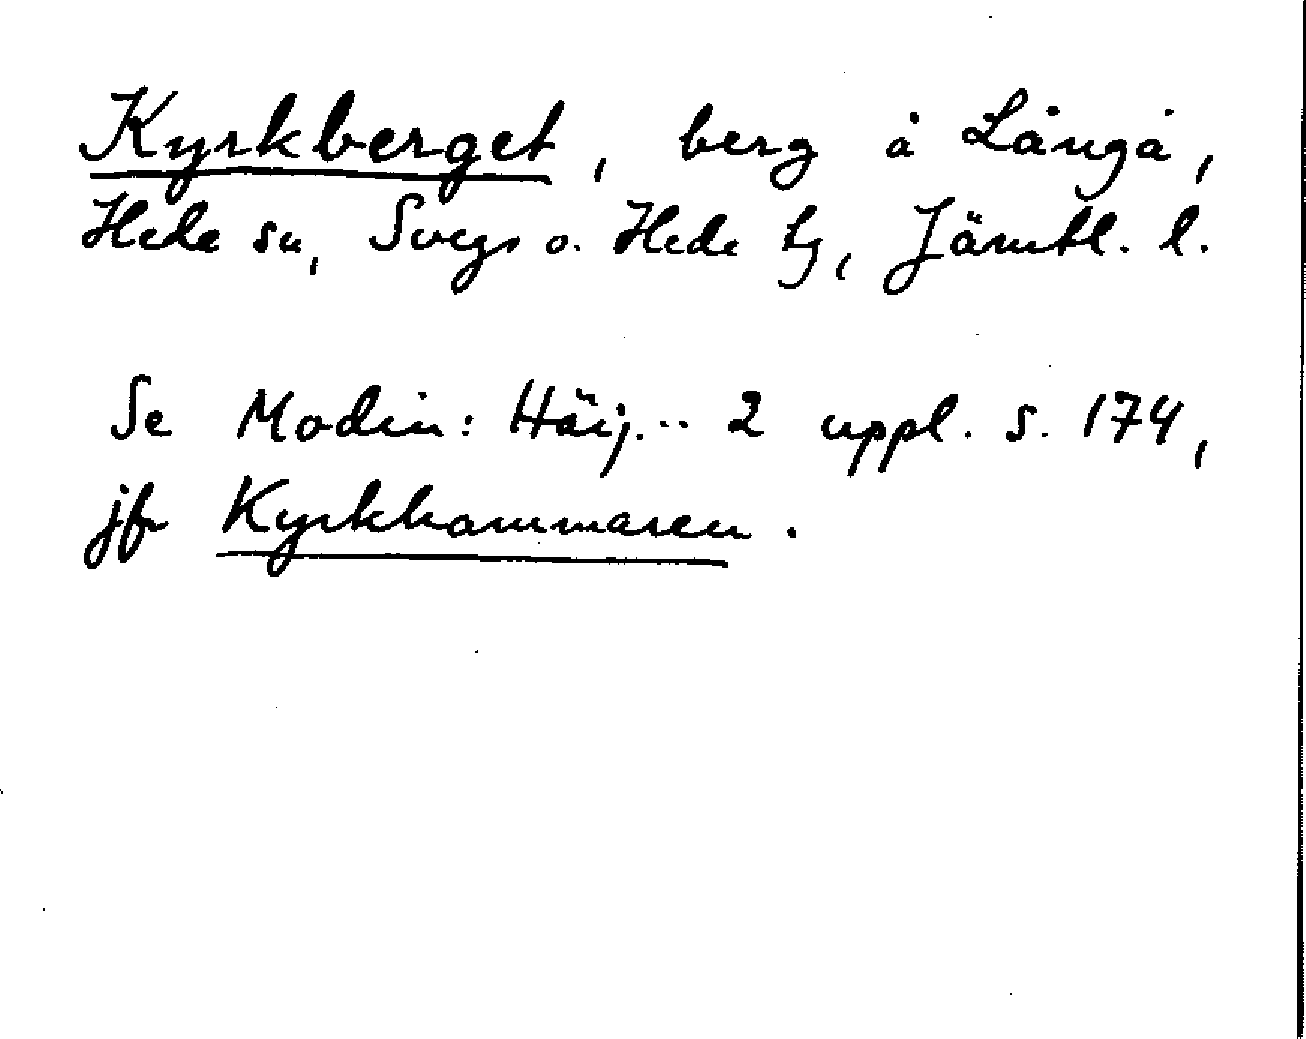 Kyrkberget, berg å Långå,
Hede sn, Svegs o. Hede tg, Jämtl. l.
Se Modin: Härj... 2 uppl. s. 174,
jfr Kyrkhammaren.